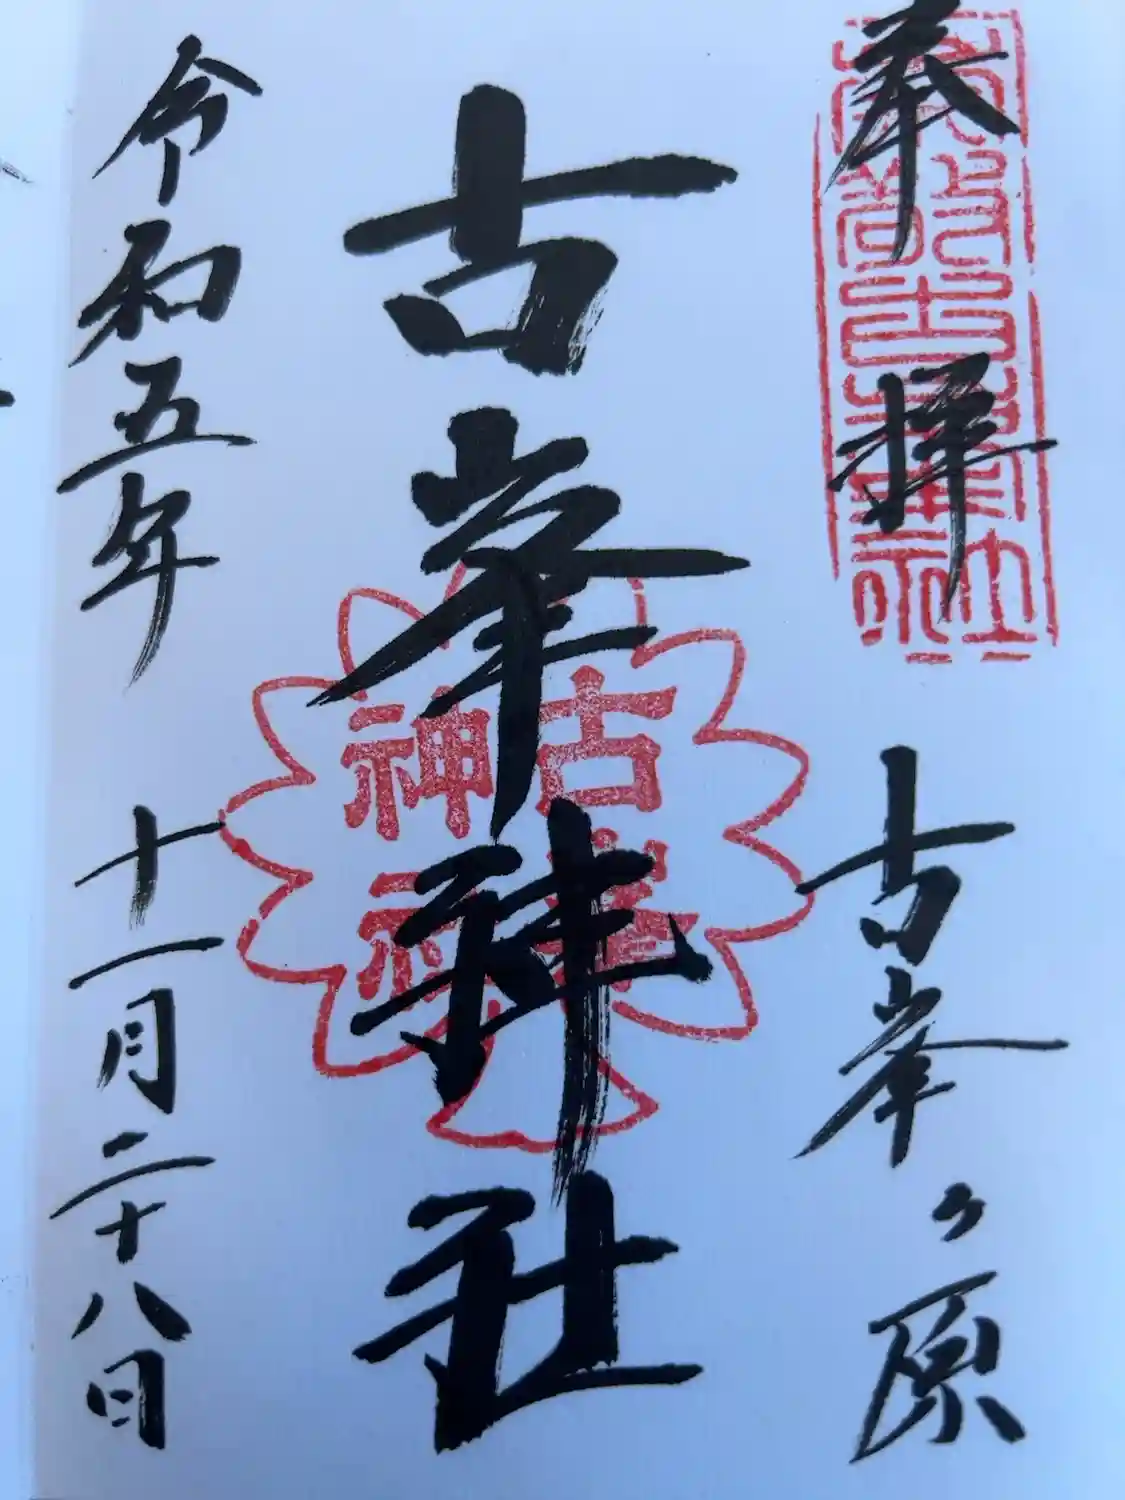 奉拝
古峯ヶ原
古峯神社
古峯
神社
令和五年
十一月二十八日